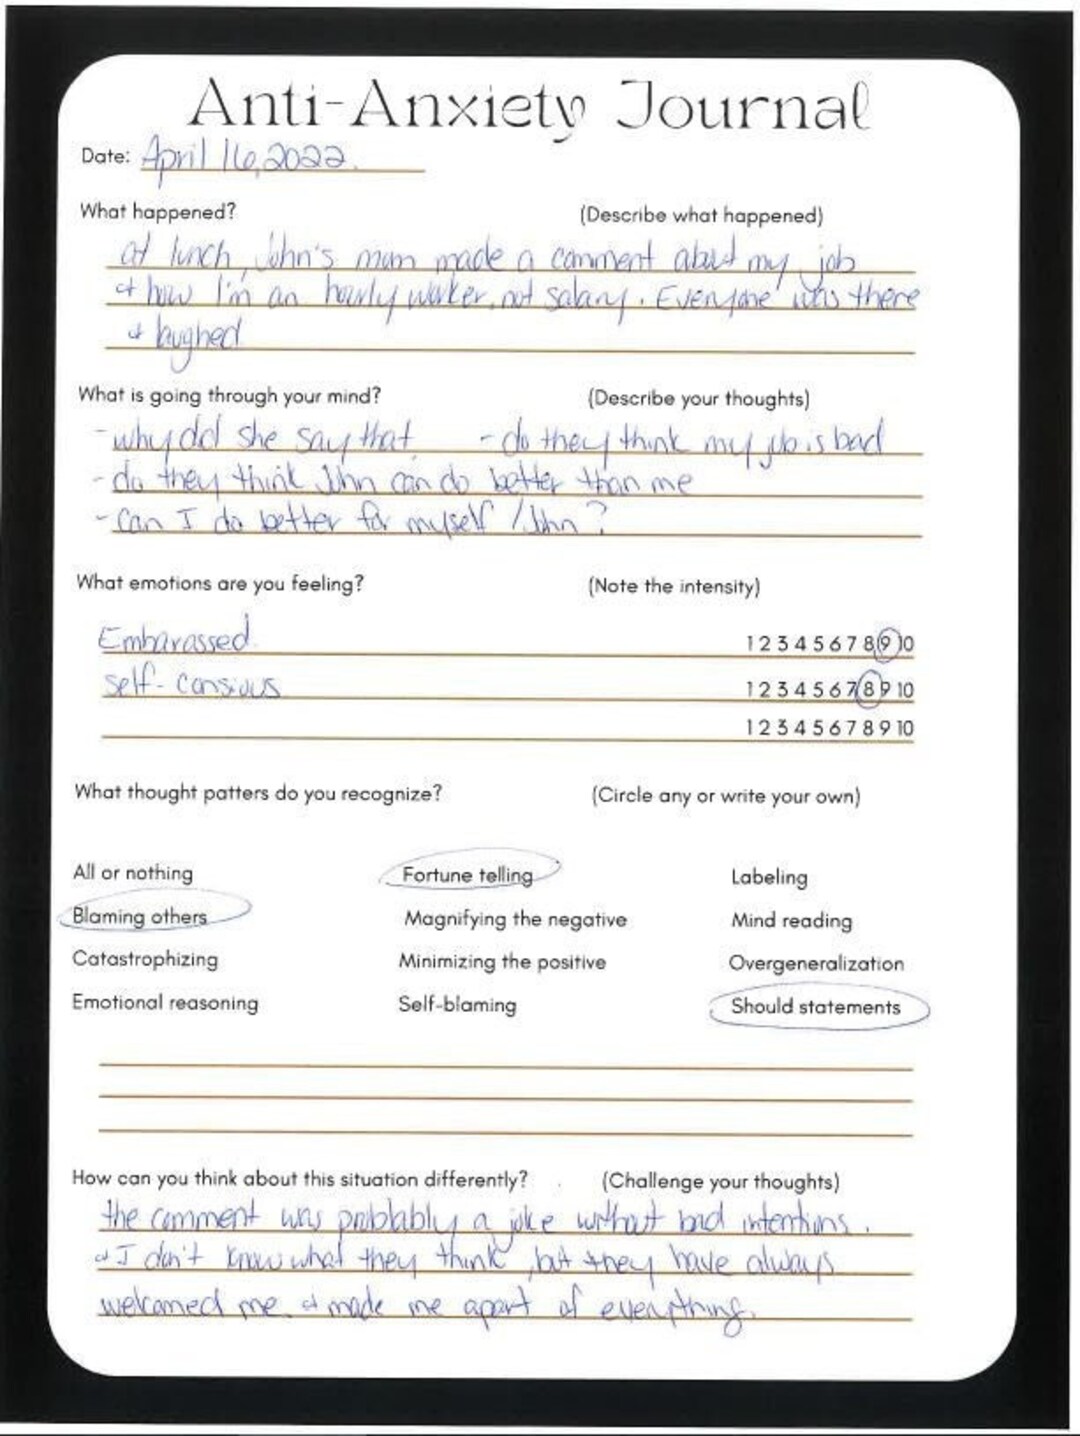 Anti-Anxiety Journal
Date: April 16, 2022.
What happened? (Describe what happened)
at lunch, John's mom made a comment about my job
& how I'm an hourly worker, not salary. Everyone was there
& laughed
What is going through your mind? (Describe your thoughts)
- why did she say that - do they think my job is bad
- do they think John can do better than me
- can I do better for myself / John?
What emotions are you feeling? (Note the intensity)
Embarassed. 1 2 3 4 5 6 7 8 9 10
self-consious 1 2 3 4 5 6 7 8 9 10
1 2 3 4 5 6 7 8 9 10
What thought patters do you recognize? (Circle any or write your own)
All or nothing Fortune telling Labeling
Blaming others Magnifying the negative Mind reading
Catastrophizing Minimizing the positive Overgeneralization
Emotional reasoning Self-blaming Should statements
How can you think about this situation differently? (Challenge your thoughts)
the comment was problably a joke without bad intentions.
& I don't know what they think, but they have always
welcomed me & made me apart of everything.